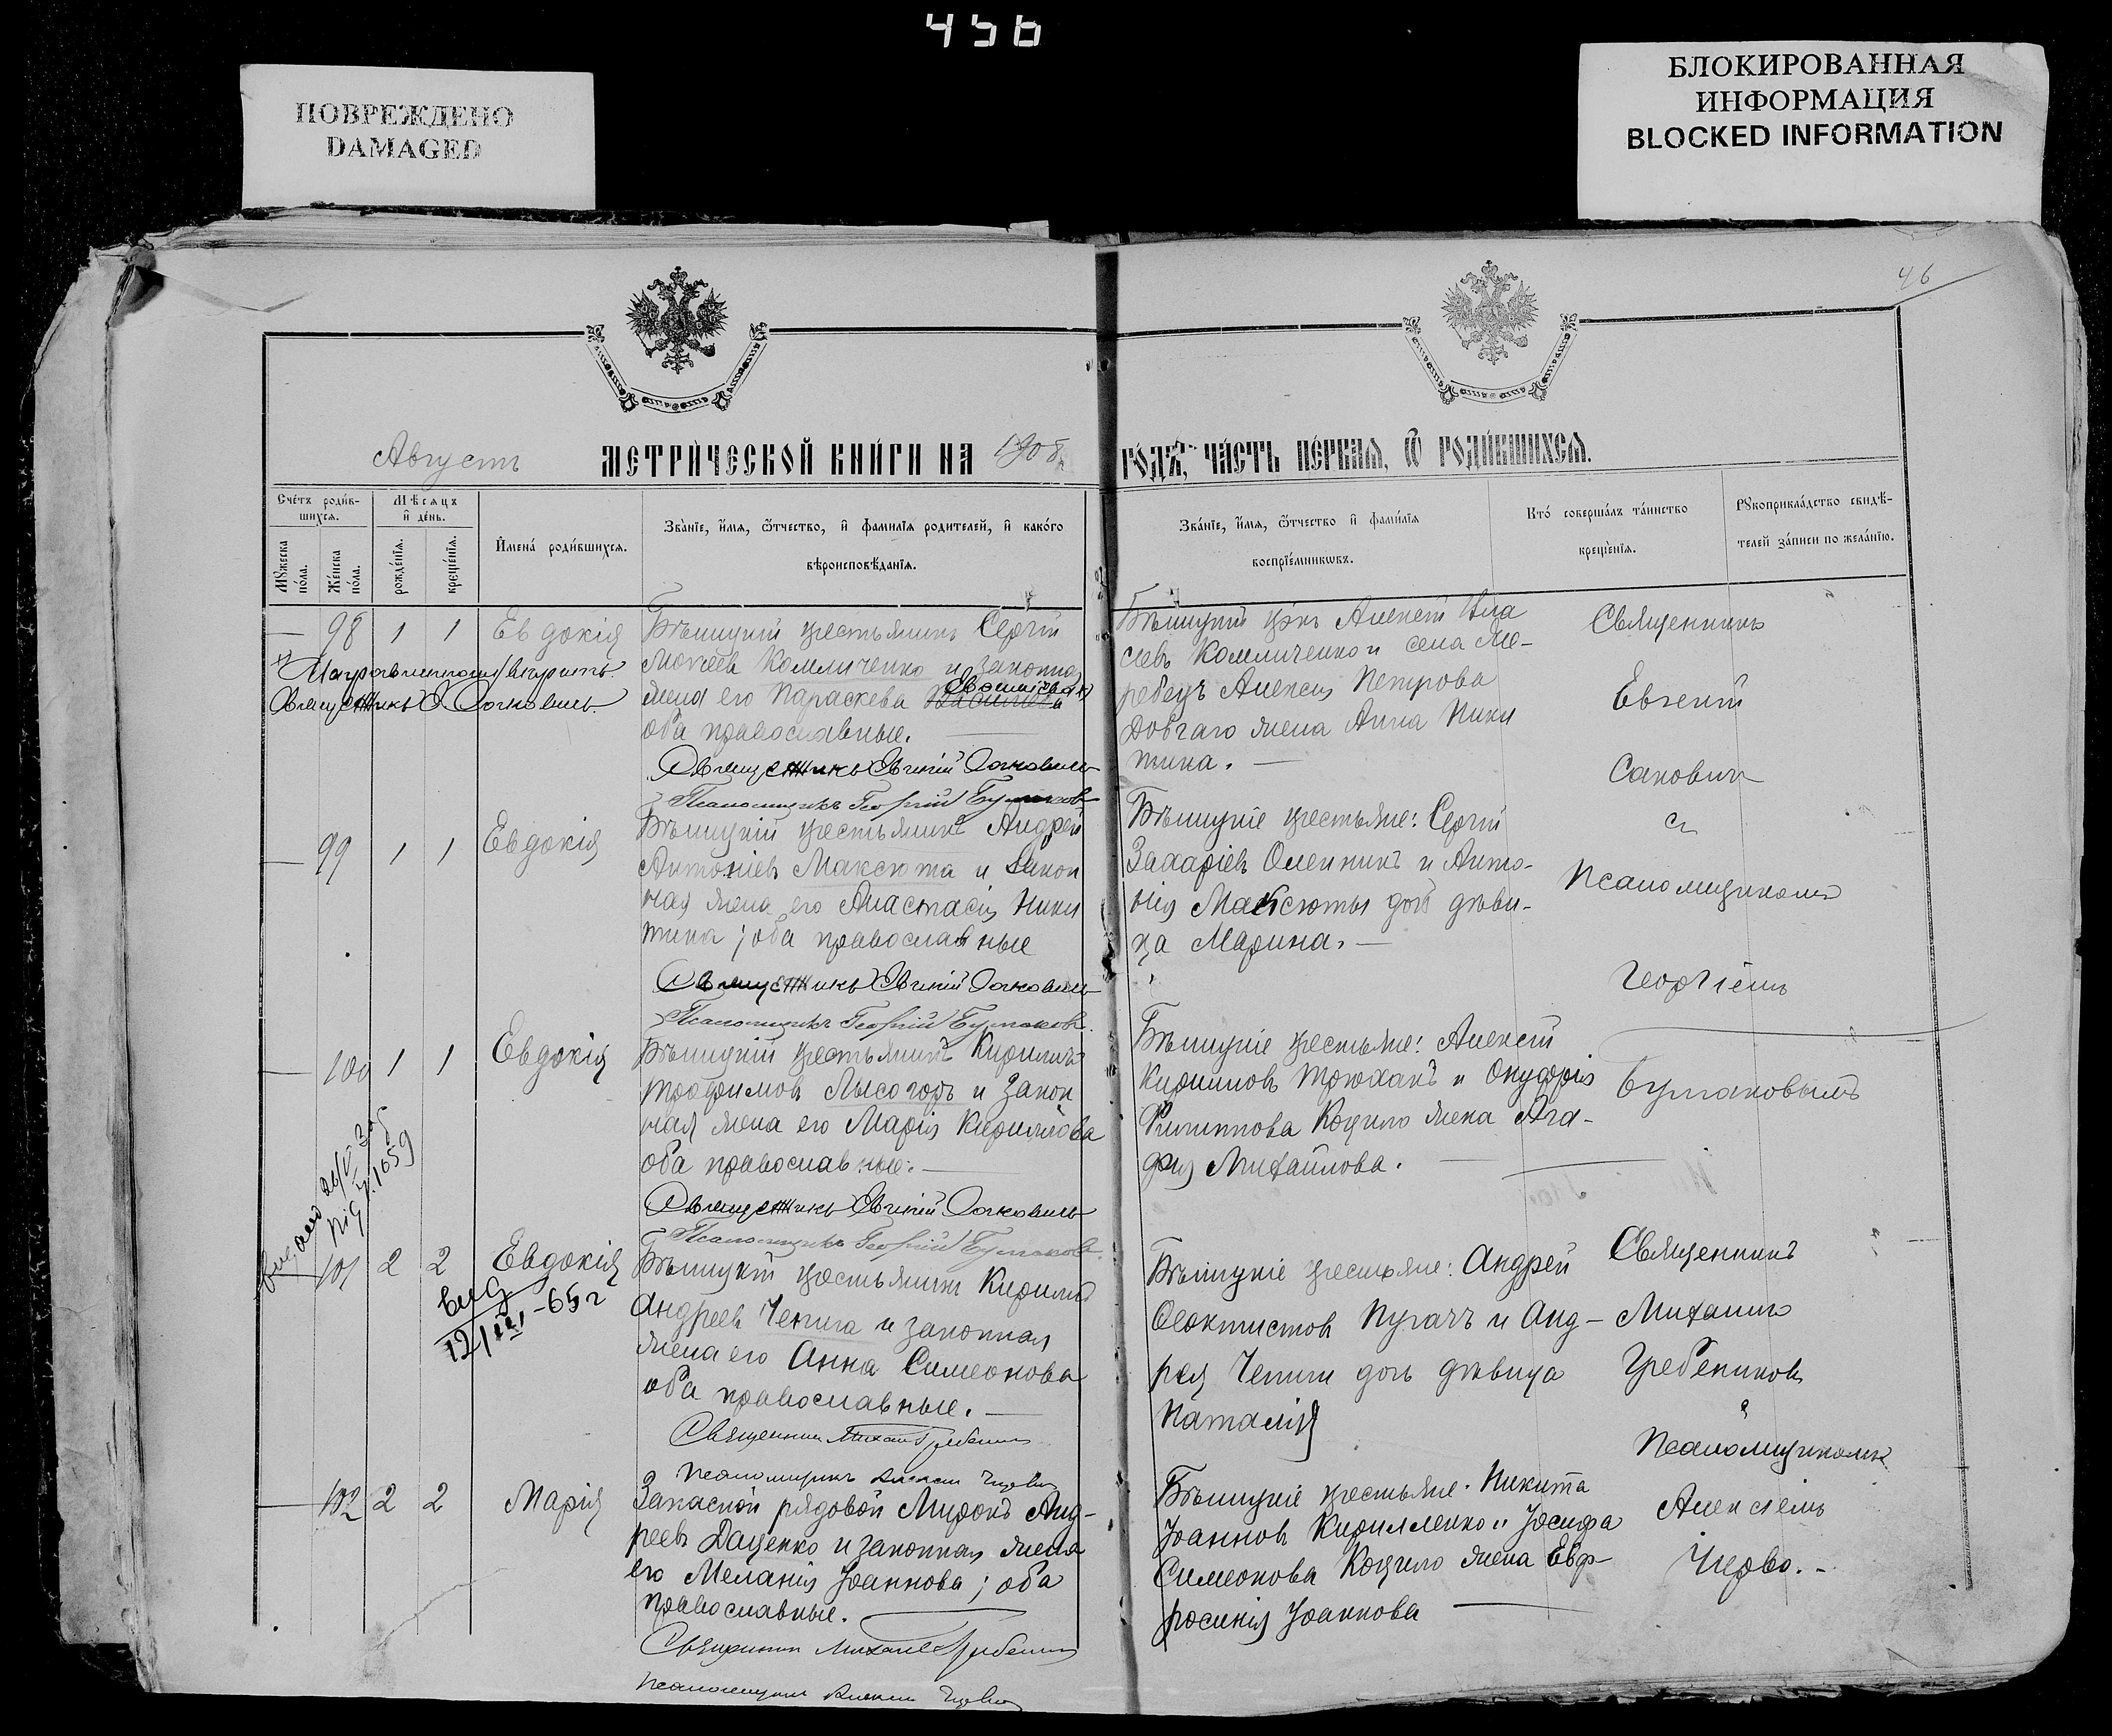 456
ПОВРЕЖДЕНО
DAMAGED
БЛОКИРОВАННАЯ
ИНФОРМАЦИЯ
BLOCKED INFORMATION
46
Августъ
МЕТРИ́ЧЕСКОЙ КНИ́ГИ НА 1908
ГО́ДЪ, ЧА́СТЬ ПЕ́РВАЯ, Ѿ РОДИ́ВШИХСЯ.
Счётъ роди́в-
шихся.
Мѣсяцъ
и҆ де́нь.
Мꙋжеска по́ла.
Же́нска по́ла.
рожде́нїя.
креще́нїя.
И҆мена̀ роди́вшихся.
Зва́нїе, и҆́мя, ѻ҆́тчество, и҆ фамилїя родителей, и҆ како́го
вѣроисповѣданїя.
Зва́нїе, и҆́мя, ѻ҆́тчество и҆ фами́лїя
воспрїе́мникѡвъ.
Кто̀ соверша́лъ та́инство
креще́нїя.
Рꙋкоприкла́дство свидѣ́-
телей за́писи по жела́нїю.
— 98 1 1 Евдокія
Бѣлицкій крестьянинъ Сергій
Моисеевъ Комличенко и законная
жена его Параскева Василіева
оба православные.
Священникъ Евгеній Санковичъ
Псаломщикъ Георгій Бутаковъ
Священникъ Е Санковичъ.
Бѣлицкій кр-нъ Алексій
Комличенко и села Же-
ребецъ Алексія Петрова
Довгаго жена Анна Ники
тина. —
Священникъ
Евгеній
Санковичъ
съ
Псаломщикомъ
Георгіемъ
Бутаковымъ
— 99 1 1 Евдокія
Бѣлицкій крестьянинъ Андрей
Антоніевъ Максюта и закон
ная жена его Анастасія Ники
тина; оба православные
Священникъ Евгеній Санковичъ
Псаломщикъ Георгій Бутаковъ.
Бѣлицкіе крестьяне: Сергій
Захаріевъ Олейникъ и Анто-
нія Максюты дочь дѣви-
ца Марина. —
— 100 1 1 Евдокія
Бѣлицкій крестьянинъ Кириллъ
Трофимовъ Лысогоръ и закон
ная жена его Марія Кириллова
оба православные. —
Священникъ Евгеній Санковичъ
Псаломщикъ Георгій Бутаковъ.
Бѣлицкіе крестьяне: Алексій
Кирилловъ Трюханъ и Онуфрія
Филиппова Коцило жена Ага-
фія Михайлова. —
101 2 2 Евдокія
Бѣлицкій крестьянинъ Кириллъ
Андреевъ Чепига и законная
жена его Анна Симеонова
оба православные. —
Священникъ Михаилъ Гребениковъ
Псаломщикъ Алексій Чирво
Бѣлицкіе крестьяне: Андрей
Ѳеоктистовъ Пугачъ и Анд-
рея Чепиги дочь дѣвица
Наталія
Священникъ
Михаилъ
Гребениковъ
Псаломщикомъ
Алексіемъ
Чирво. —
— 102 2 2 Марія
Запасной рядовой Миронъ Анд-
реевъ Даценко и законная жена
его Меланія Іоаннова; оба
православные.
Священникъ Михаилъ Гребениковъ
Псаломщикъ Алексій Чирво
Бѣлицкіе крестьяне. Никита
Іоанновъ Кирилленко и Іосифа
Симеонова Коцило жена Евф-
росинія Іоаннова —